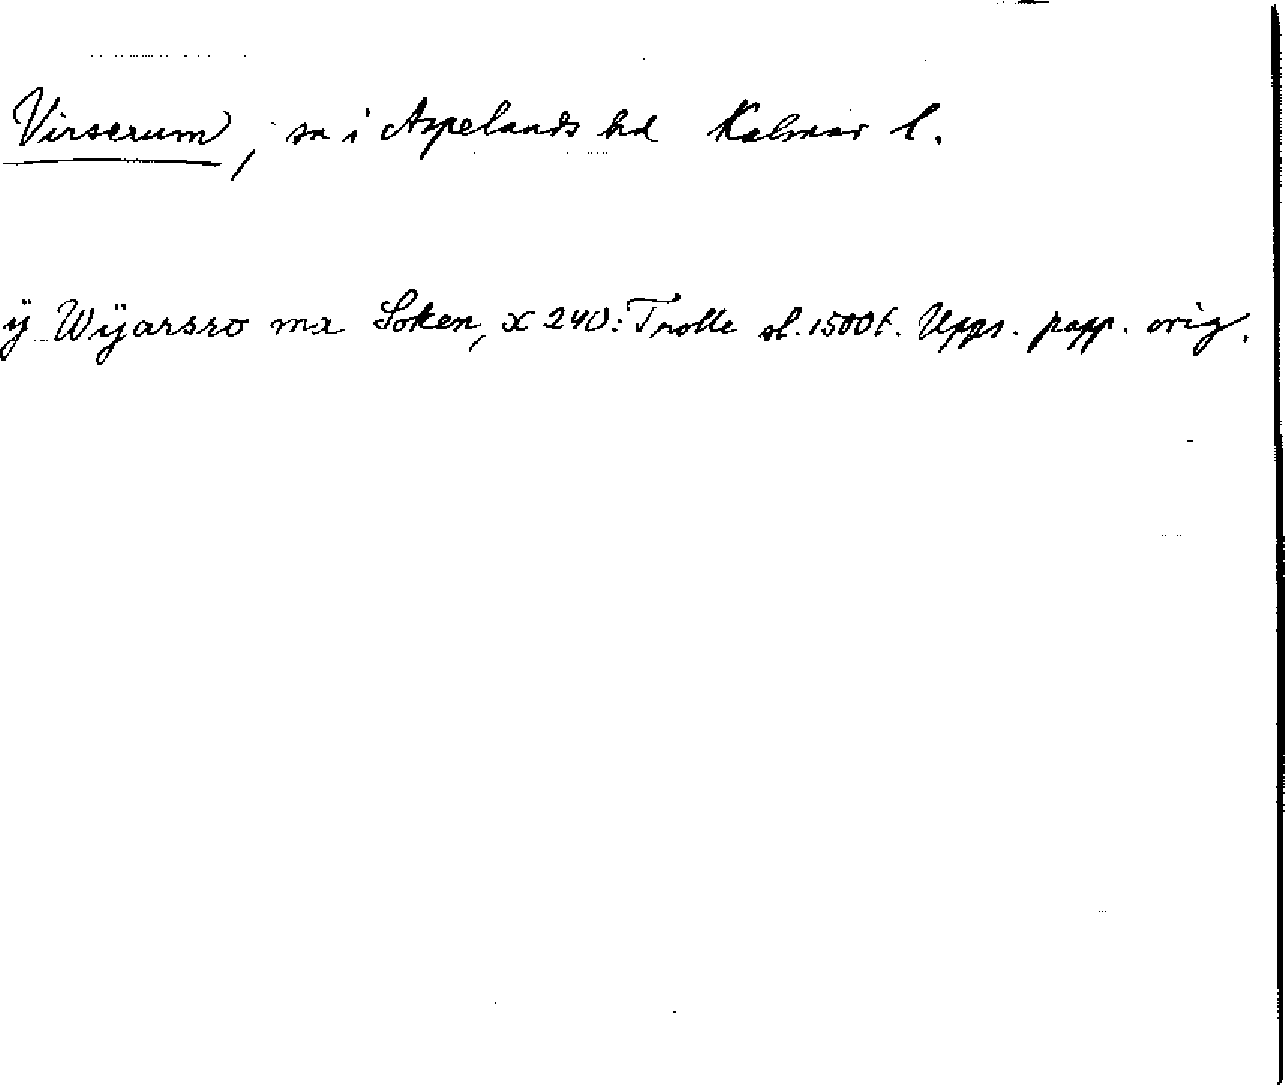 Virserum, sn i Aspelands hd Kalmar l.
ÿ Wÿarsro ma Soken, X 240: Trolle sl. 1500 t. Upps. papp. orig.